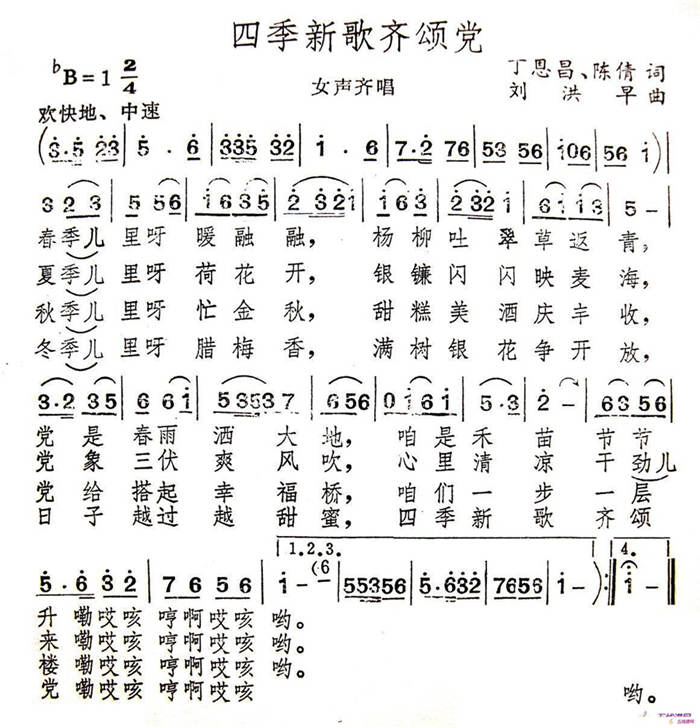 四季新歌齐颂党
ᵇB=1 2/4
丁恩昌、陈倩 词
女声齐唱
刘洪早 曲
欢快地、中速
(3·5 23 | 5·6 | 335 32 | 1·6 | 7·2 76 | 53 56 | 106 | 56 1)
3 23 | 5 56 | 163 35 | 2 321 | 163 | 2321 | 61 13 | 5 -
春季儿里呀暖融融，杨柳吐翠草返青，
夏季儿里呀荷花开，银镰闪闪映麦海，
秋季儿里呀忙金秋，甜糕美酒庆丰收，
冬季儿里呀腊梅香，满树银花争开放，
3·2 35 | 6 61 | 5353 7 | 656 | 01 61 | 5·3 | 2 - | 63 56
党是春雨洒大地，咱是禾苗节节
党象三伏爽风吹，心里清凉干劲儿
党给搭起幸福桥，咱们一步一层
日子越过越甜蜜，四季新歌齐颂
1.2.3. 4.
5·6 32 | 76 56 | 1 - (6 | 55356 | 5·6 32 | 7656 | 1 -) :| 1 -
升嘞哎咳哼啊哎咳哟。
来嘞哎咳哼啊哎咳哟。
楼嘞哎咳哼啊哎咳哟。
党嘞哎咳哼啊哎咳 哟。